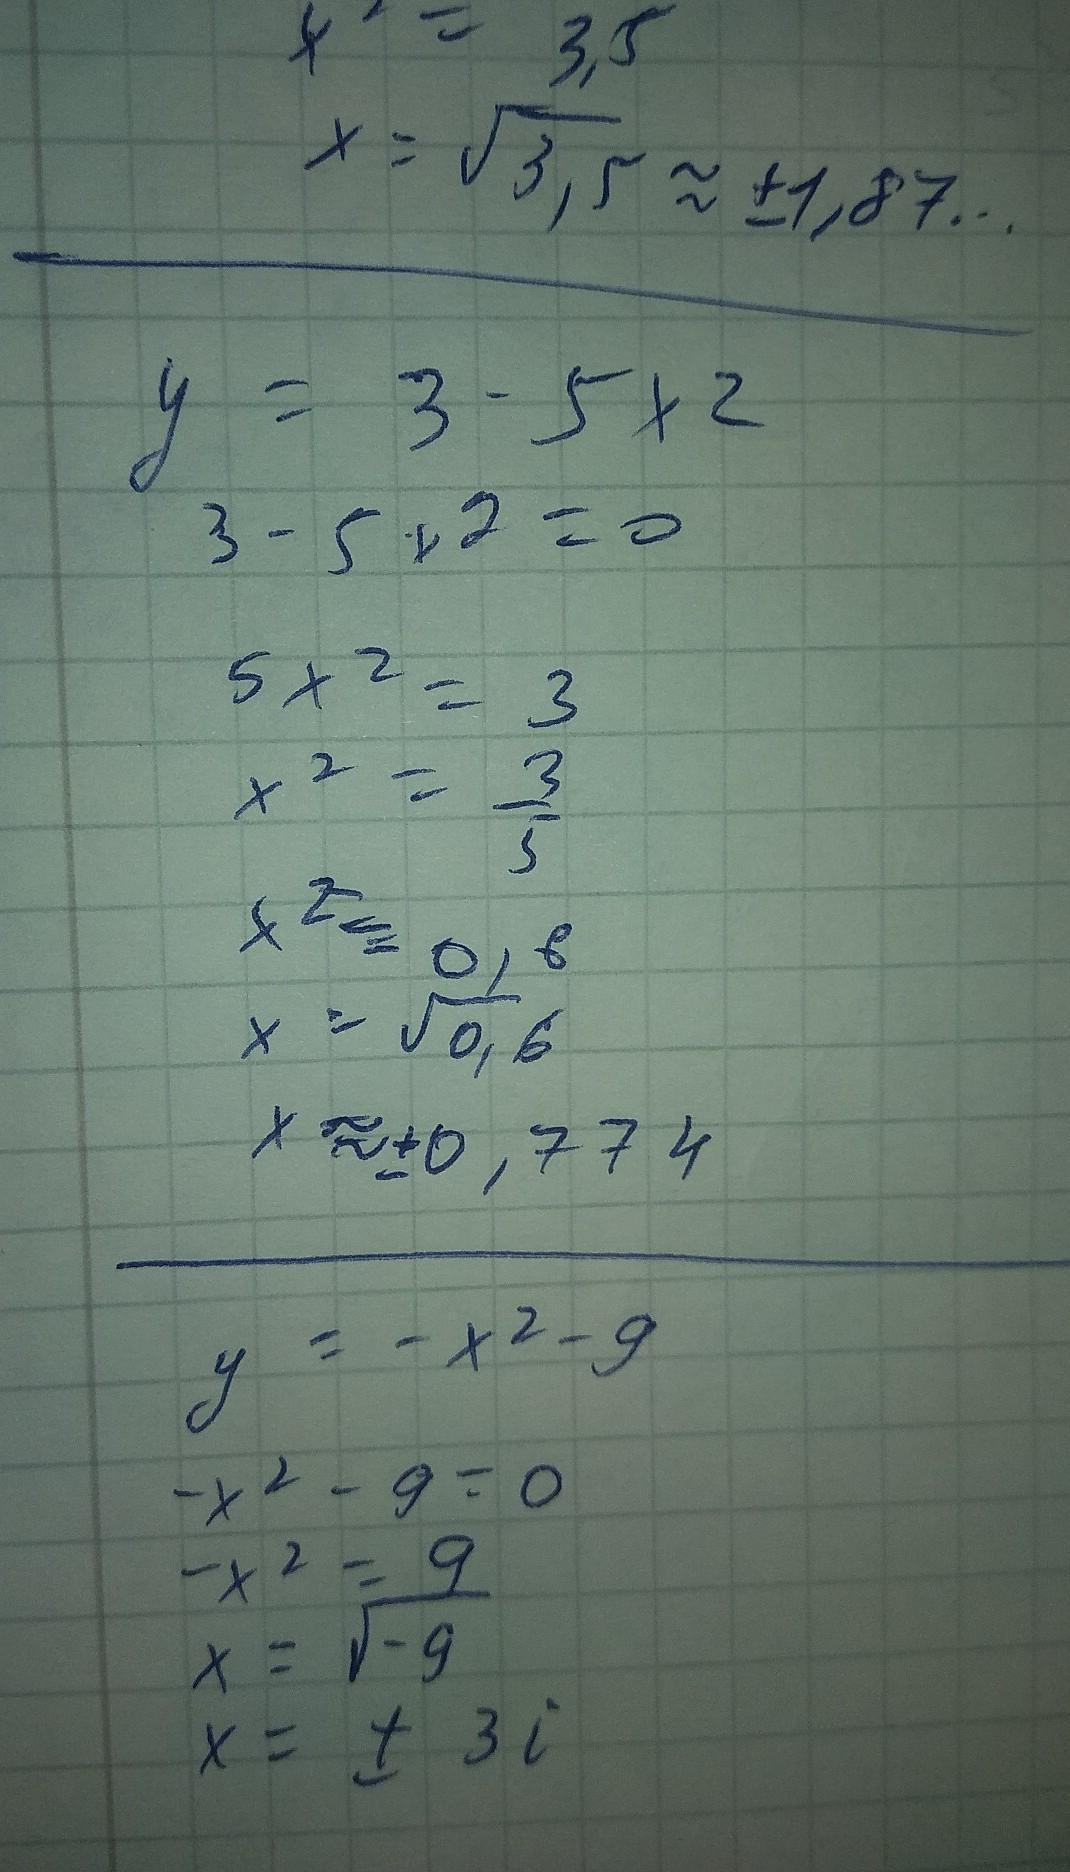 x² = 3,5
x = √3,5 ≈ ±1,87...
y = 3 - 5x2
3 - 5x2 = 0
5x² = 3
x² = 3/5
x² = 0,6
x = √0,6
x ≈ ±0,774
y = -x² - 9
-x² - 9 = 0
-x² = 9
x = √-9
x = ± 3i